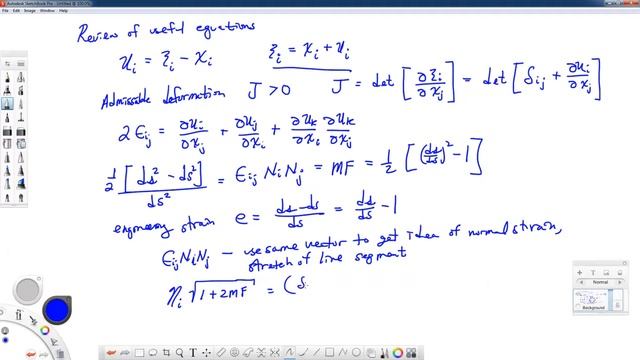 Autodesk SketchBook Pro - Untitled @ 100.0%
File Edit Image Window Help
Review of useful equations
u_i = ξ_i - x_i    ξ_i = x_i + u_i
Admissable deformation J > 0    J = det [∂ξ_i/∂x_j] = det [δ_ij + ∂u_i/∂x_j]
2ϵ_ij = ∂u_i/∂x_j + ∂u_j/∂x_i + ∂u_k/∂x_i ∂u_k/∂x_j
1/2 [ds² - ds²]/ds² = ϵ_ij N_i N_j = MF = 1/2 [(ds/ds)² - 1]
engineering strain e = (ds - ds)/ds = ds/ds - 1
ϵ_ij N_i N_j - use same vector to get idea of normal strain,
stretch of line segment
η_i √(1 + 2MF) = (δ
Background